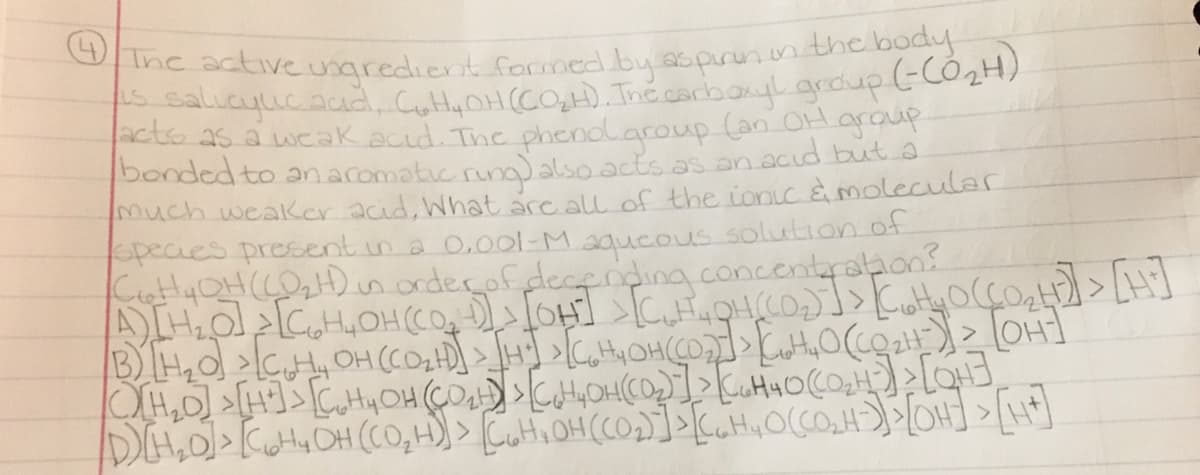 ④ The active ingredient formed by aspirin in the body
is salicylic acid, C₆H₄OH(CO₂H). The carboxyl group (-CO₂H)
acts as a weak acid. The phenol group (an OH group
bonded to an aromatic ring) also acts as an acid but a
much weaker acid, What are all of the ionic & molecular
species present in a 0.001-M aqueous solution of
C₆H₄OH(CO₂H) in order of decending concentration?
A) [H₂O] > [C₆H₄OH(CO₂H)] > [OH⁻] > [C₆H₄OH(CO₂)⁻] > [C₆H₄O(CO₂H⁻)] > [H⁺]
B) [H₂O] > [C₆H₄OH(CO₂H)] > [H⁺] > [C₆H₄OH(CO₂)⁻] > [C₆H₄O(CO₂H⁻)] > [OH⁻]
C) [H₂O] > [H⁺] > [C₆H₄OH(CO₂H)] > [C₆H₄OH(CO₂)⁻] > [C₆H₄O(CO₂H⁻)] > [OH⁻]
D) [H₂O] > [C₆H₄OH(CO₂H)] > [C₆H₄OH(CO₂)⁻] > [C₆H₄O(CO₂H⁻)] > [OH⁻] > [H⁺]